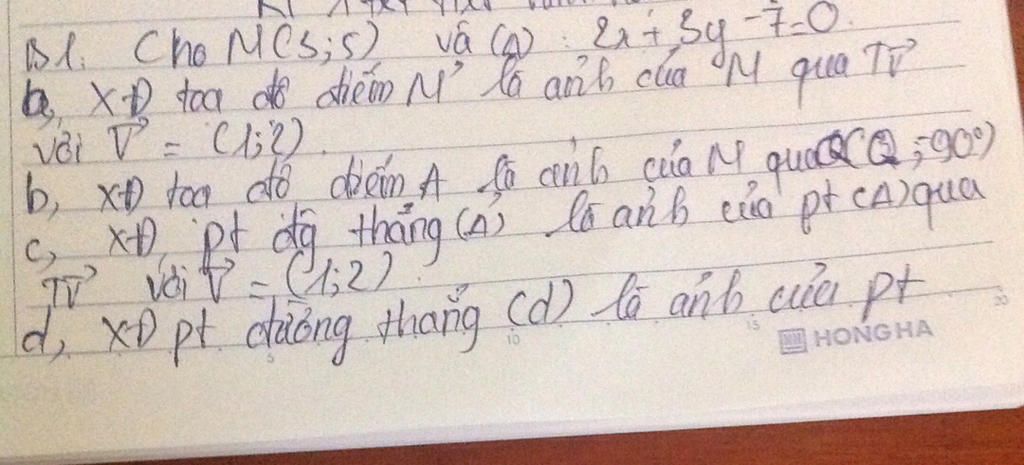 B1. Cho M(3;5) và (Δ): 2x+3y-7=0.
a, XĐ toạ độ điểm M' là ảnh của M qua TV→
với V→ = (1;2).
b, XĐ toạ độ điểm A là ảnh của M qua Q(Q;-90°)
c, XĐ pt đg thẳng (Δ') là ảnh của pt (Δ) qua
TV→ với V→ = (1;2).
d, XĐ pt đường thẳng (d) là ảnh của pt
5 10 15 20
HONG HA